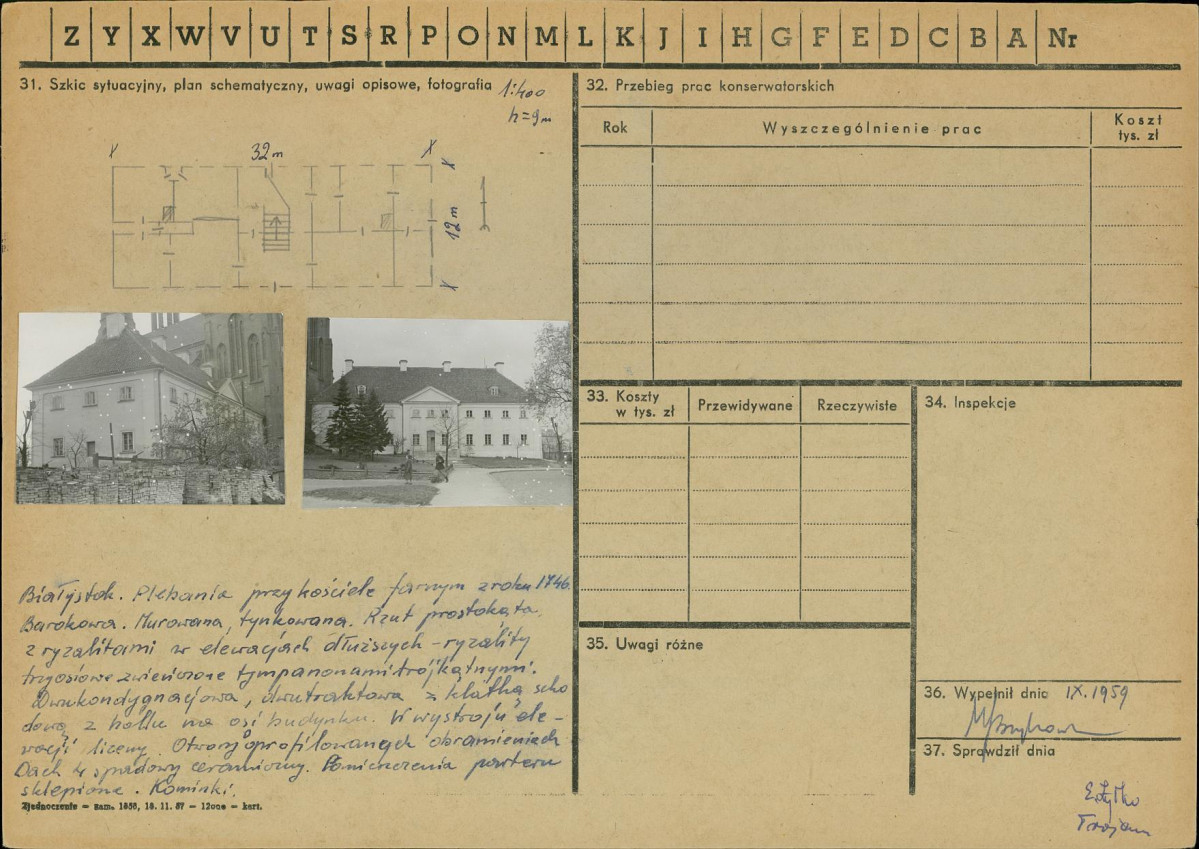 Z Y X W V U T S R P O N M L K J I H G F E D C B A Nr
31. Szkic sytuacyjny, plan schematyczny, uwagi opisowe, fotografia
1:400
h=9m
32 m
12 m
Białystok. Plebania przy kościele farnym z roku 1746.
Barokowa. Murowana, tynkowana. Rzut prostokąta,
z ryzalitami w elewacjach dłuższych - ryzality
trzyosiowe zwieńczone tympanonami trójkątnymi.
Dwukondygnacjowa, dwutraktowa z klatką scho
dową z hallu na osi budynku. W wystroju ele-
wacji lizeny. Otwory o profilowanych obramieniach
Dach 4 spadowy ceramiczny. Pomieszczenia parteru
sklepione. Kominki.
Zjednoczenie — zam. 1858, 18. 11. 57 — 12000 — kart.
32. Przebieg prac konserwatorskich
Rok
Wyszczególnienie prac
Koszt
tys. zł
33. Koszty
w tys. zł
Przewidywane
Rzeczywiste
34. Inspekcje
35. Uwagi różne
36. Wypełnił dnia IX.1959
37. Sprawdził dnia